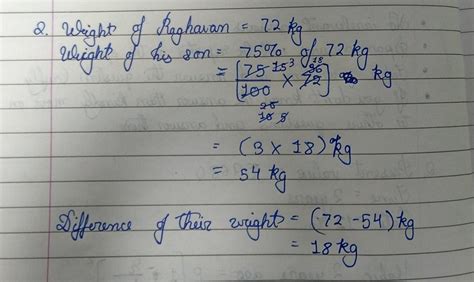 2. Weight of Raghavan = 72 kg
Weight of his son = 75% of 72 kg
= [75 15 3 / 100 20 10 5 × 72 36 18] kg
= (3 × 18) kg
= 54 kg
Difference of their weight = (72 - 54) kg
= 18 kg